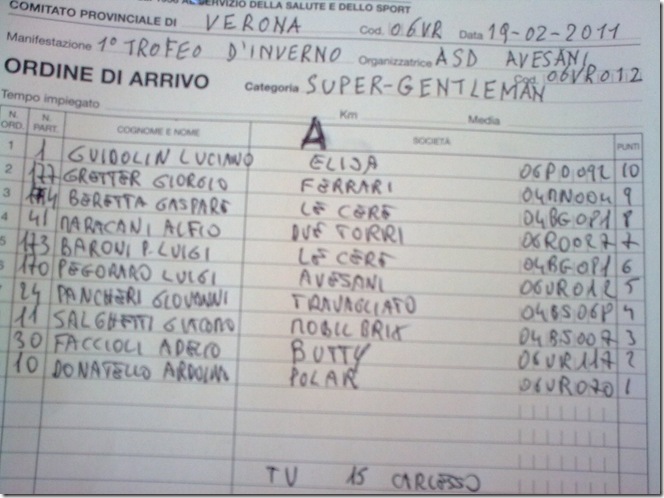 SERVIZIO DELLA SALUTE E DELLO SPORT
COMITATO PROVINCIALE DI VERONA Cod. 06VR Data 19-02-2011
Manifestazione 1° TROFEO D'INVERNO Organizzatrice ASD AVESANI
ORDINE DI ARRIVO Categoria SUPER-GENTLEMAN Cod. 06VR012
Tempo impiegato Km Media
N. ORD. N. PART. COGNOME E NOME A SOCIETÀ PUNTI
1 1 GUIDOLIN LUCIANO ELISA 06PD092 10
2 177 GRETTER GIORGIO FERRARI 04MN004 9
3 174 BERETTA GASPARE LE CERE 04BG081 8
4 41 MARACANI ALFIO DUE TORRI 06RO027 7
5 173 BARONI P. LUIGI LE CERE 04BG081 6
6 170 PEGORARO LUIGI AVESANI 06VR012 5
24 PANCHERI GIOVANNI TRAVAGLIATO 04BS068 4
11 SALGHETTI GIACOMO MOBIL BRIX 04BS007 3
30 FACCIOLI ADELCO BUTTY 06VR117 2
10 DONATELLO ARDUINO POLAR 06VR070 1
TV 15